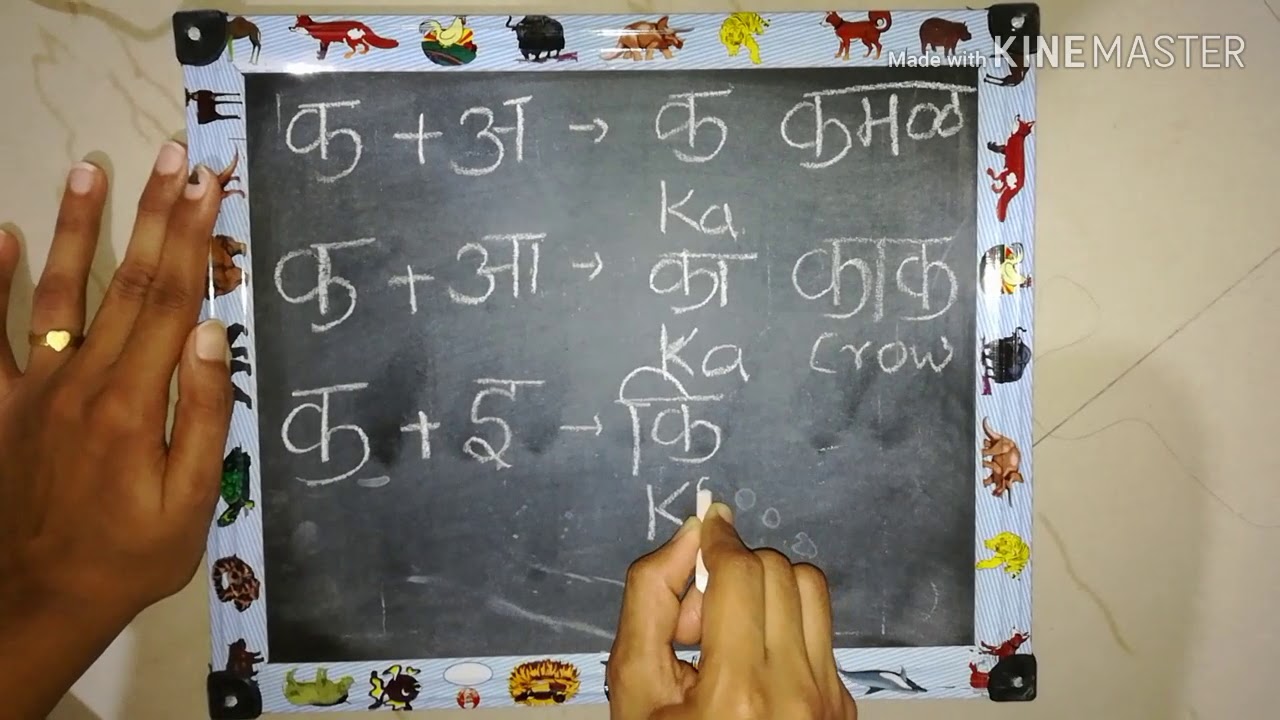 Made with KINEMASTER
क + अ → क कमळ
Ka
क + आ → का काक
Ka Crow
क + इ → कि
K